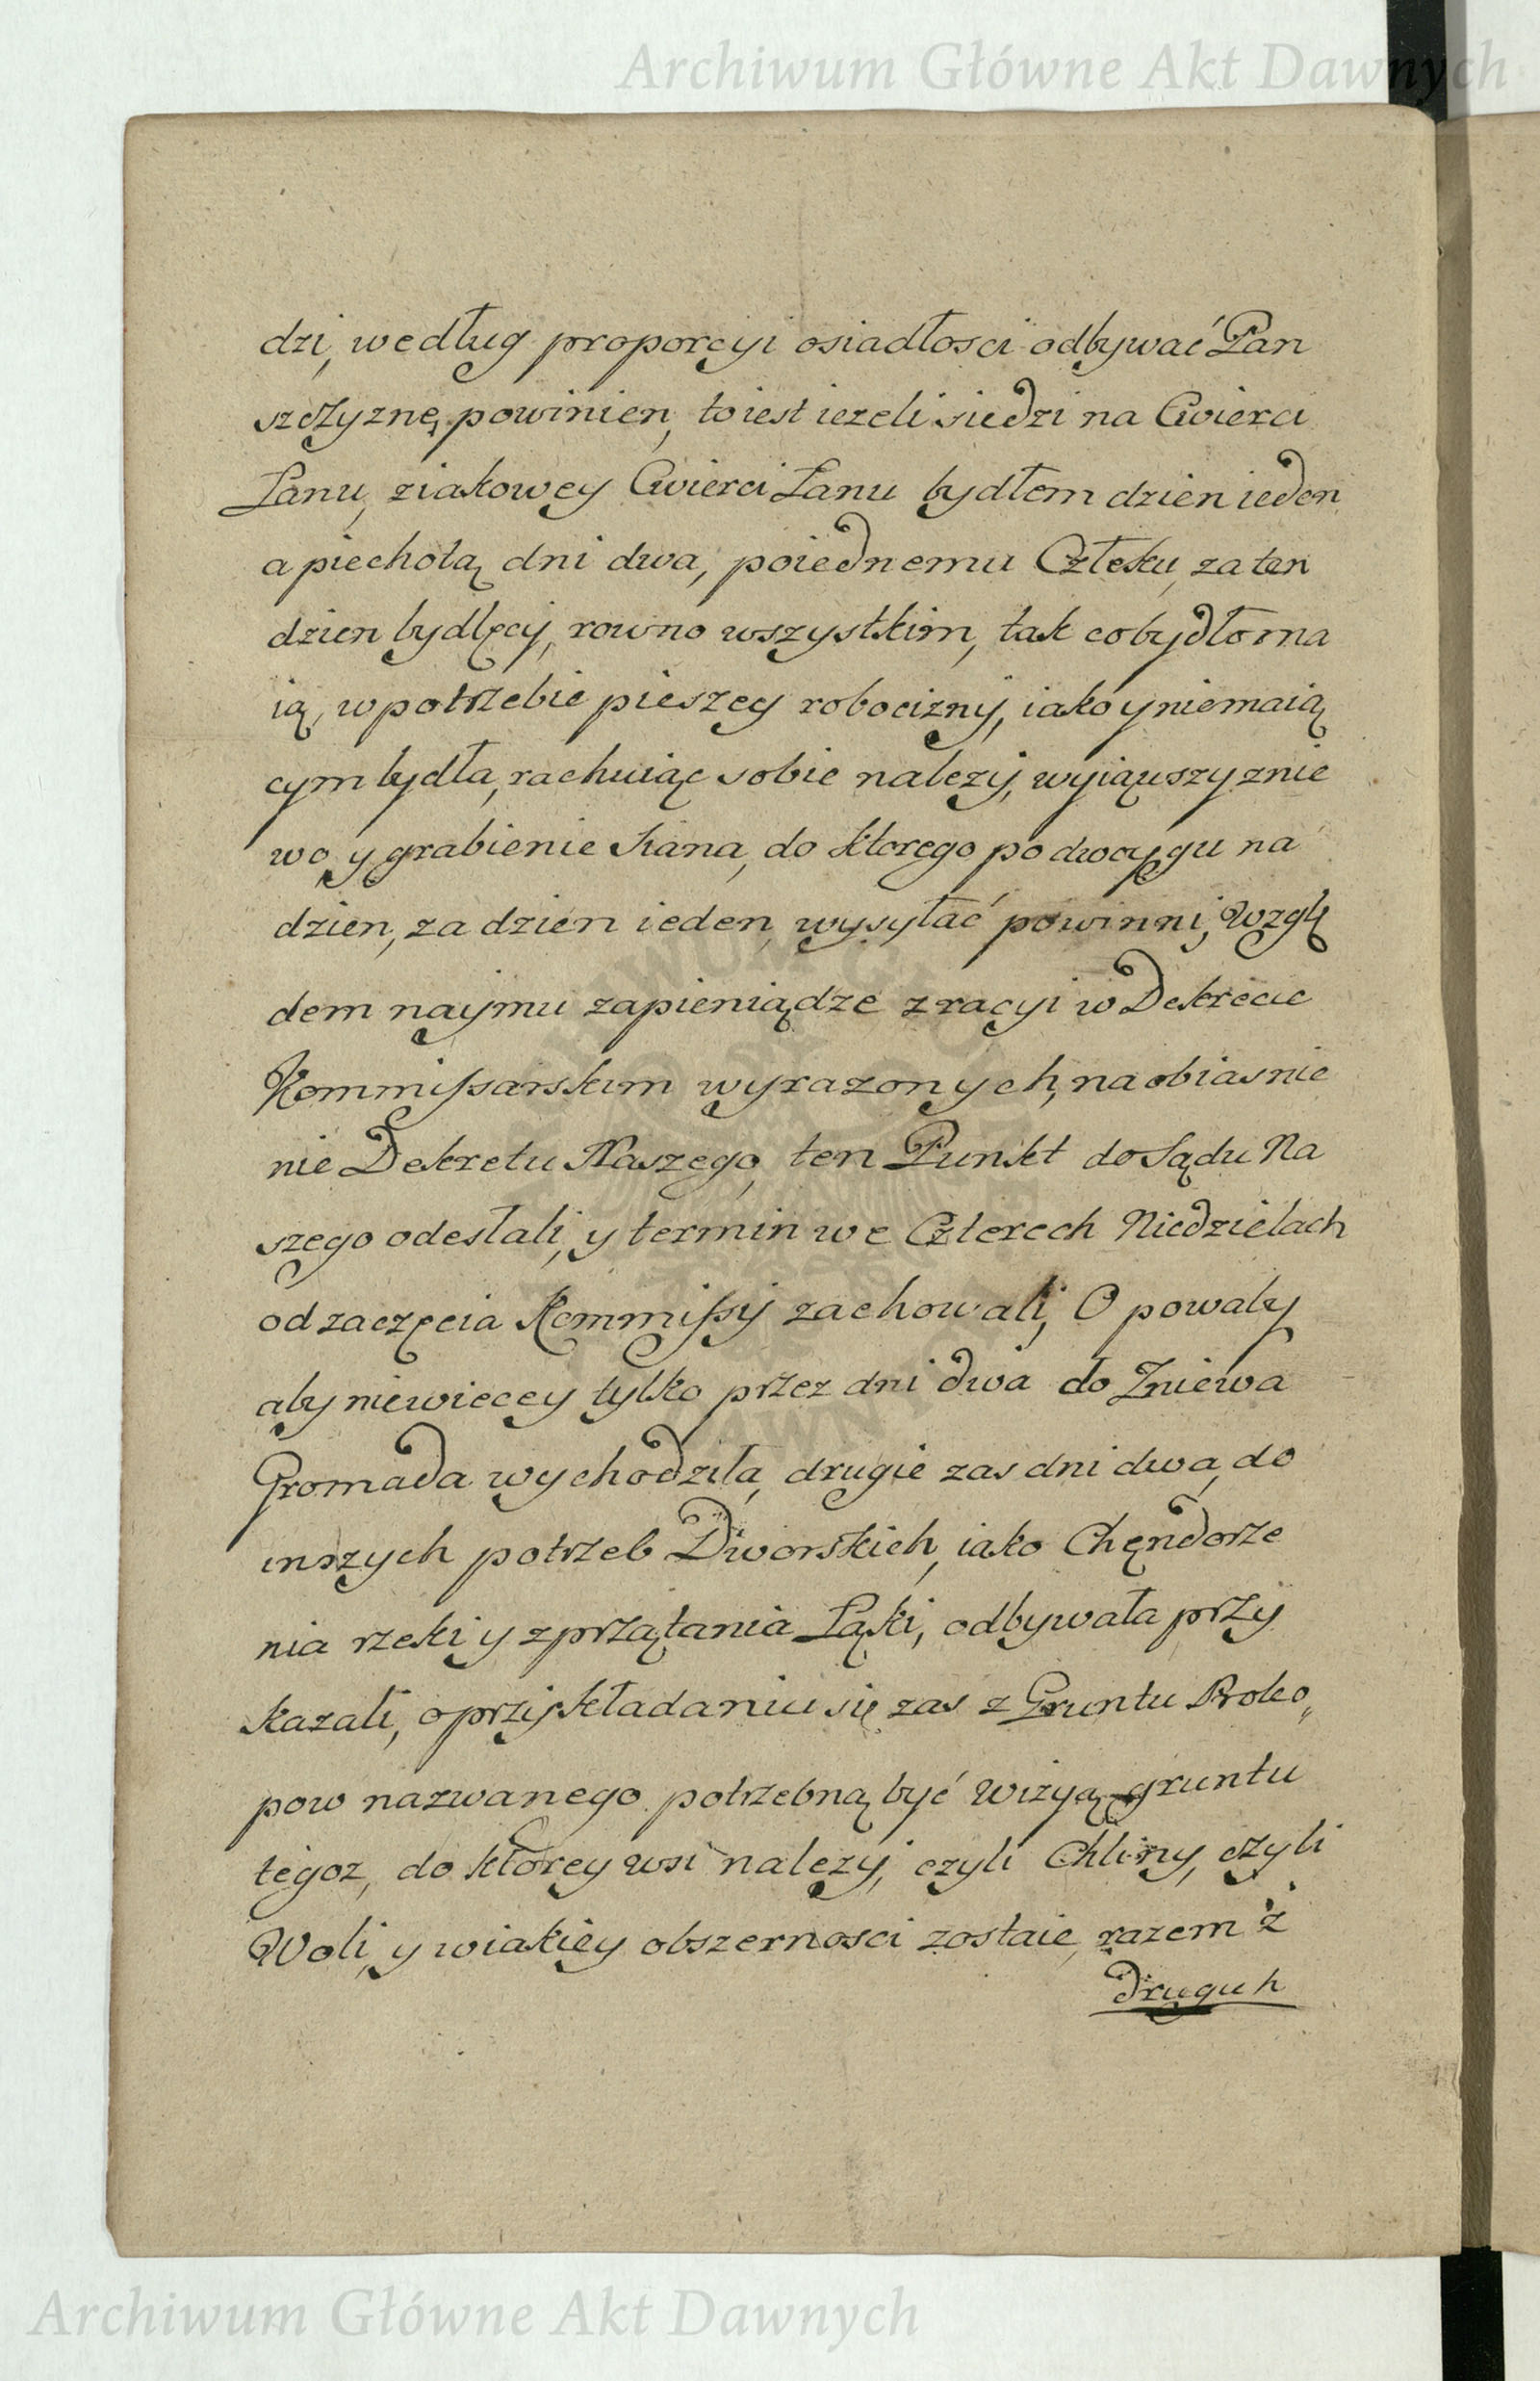 Archiwum Główne Akt Dawnych
dzi, według proporcyi osiadłosci odbywać Pan
szczyznę powinien, toiest iezeli siedzi na Cwierci
Łanu, ziakowey Cwierci Łanu bydłem dzien ieden
a piechotą dni dwa, poiednemu Człeku, za ten
dzien bydlęcy, rowno wszystkim, tak cobydłoma
ią, wpotrzebie pieszey robocizny, iako yniemaią
cym bydła, rachuiąc sobie nalezy, wyiąwszy znie
wo y grabienie siana, do ktorego po dwoygu na
dzien, za dzien ieden, wysyłać powinni, Wzglę
dem naymu zapieniądze z racyi w Dekrecie
Kommissarskim wyrazonych, na obiasnie
nie Dekretu Naszego, ten Punkt do Sądu Na
szego odesłali, y termin we Czterech Niedzielach
od zaczęcia Kommissyi zachowali, O powaby
aby niewiecey tylko przez dni dwa do Zniewa
Gromada wychodziła, drugie zas dni dwa, do
inszych potrzeb Dworskich, iako Chęndorze
nia rzeki y zprzątania Łąki, odbywała przy
kazali, oprzykładaniu się zas z Gruntu Proko„
pow nazwanego potrzebną być wizyą gruntu
tegoz, do ktorey wsi nalezy, czyli Chliny, czyli
Woli, y wiakiey obszernosci zostaie, razem z
drugich
Archiwum Główne Akt Dawnych